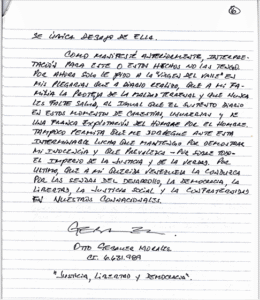 6
SE ÚNICA DESPOJO DE ELLA.
COMO MANIFESTÉ ANTERIORMENTE, INTERPRE-
TACIÓN PARA ESTE O ESTOS HECHOS NO LAS TENGO
POR AHORA SOLO LE PIDO A LA VIRGEN DEL VALLE EN
MIS PLEGARIAS QUE A DIARIO REALIZO, QUE A MI FA-
MILIA LA PROTEJA DE LA MALDAD TERRENAL Y QUE NUNCA
LES FALTE SALUD, AL IGUAL QUE EL SUSTENTO DIARIO
EN ESTOS MOMENTOS DE CARESTÍAS, Y DE
UNA FRANCA EXPLOTACIÓN DEL HOMBRE POR EL HOMBRE.
TAMPOCO PERMITA QUE ME DOBLEGUE ANTE ESTA
INTERMINABLE LUCHA QUE MANTENGO POR DEMOSTRAR
MI INOCENCIA Y QUE PREVALEZCA POR SOBRE TODO
EL IMPERIO DE LA JUSTICIA Y DE LA VERDAD. POR
ÚLTIMO, QUE A MI QUERIDA VENEZUELA LA CONDUZCA
POR LAS SENDAS DEL DESARROLLO, LA DEMOCRACIA, LA
LIBERTAD, LA JUSTICIA SOCIAL Y LA CONFRATERNIDAD
EN NUESTROS CONNACIONALES.
OTTO GEBAUER MORALES
CI. 6.631.989
"JUSTICIA, LIBERTAD Y DEMOCRACIA".